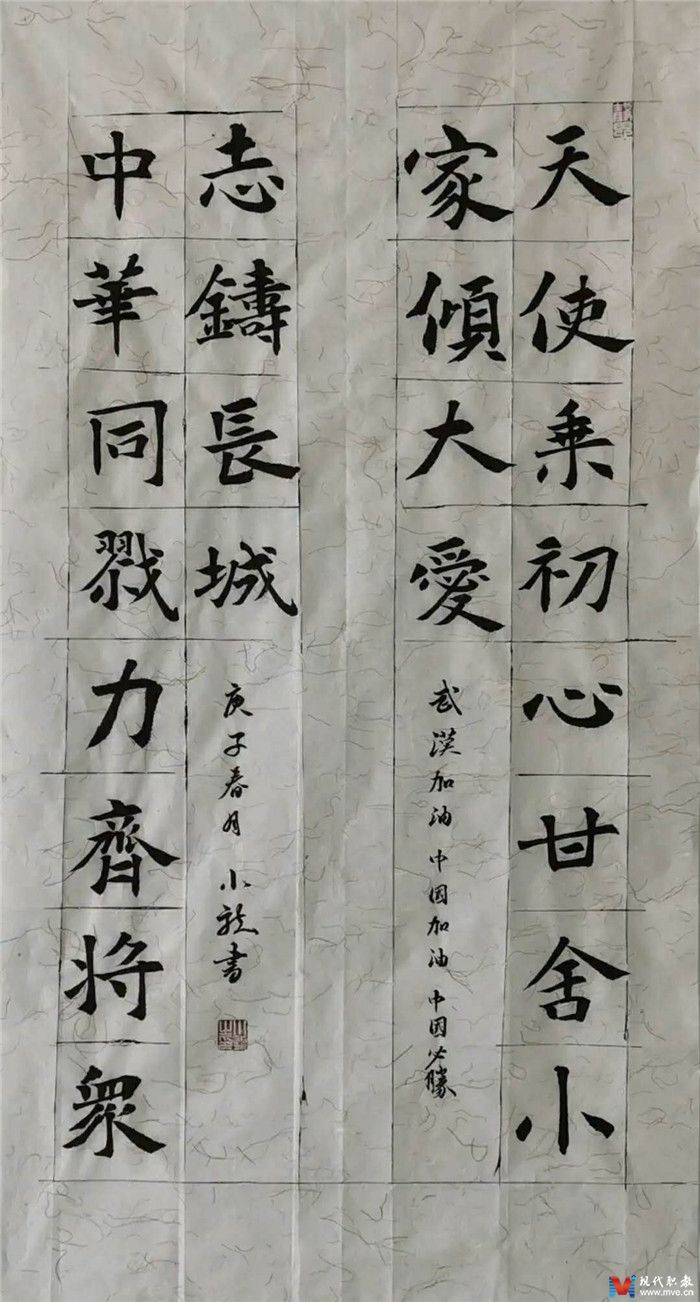 天使秉初心甘舍小
家傾大愛
武漢加油 中国加油 中国必勝
中華同戮力齊将眾
志鑄長城
庚子春月 小龍書
现代职教
www.mve.cn